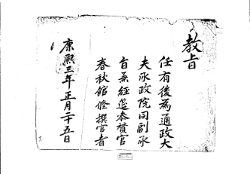 教旨
任有後爲通政大
夫承政院同副承
旨兼經筵參贊官
春秋館修撰官者
康熙三年正月二十五日